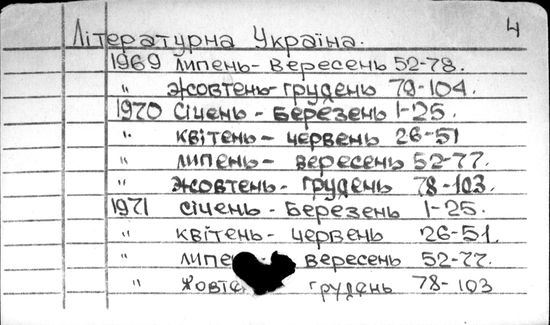 4
Літературна Україна.
1969 липень-вересень 52-78.
" жовтень-грудень 79-104.
1970 Січень - Березень 1-25.
" квітень - червень 26-51
" липень - вересень 52-77.
" жовтень - грудень 78-103.
1971 січень - Березень 1-25.
" квітень - червень 26-51.
" вересень 52-77.
" грудень 78-103